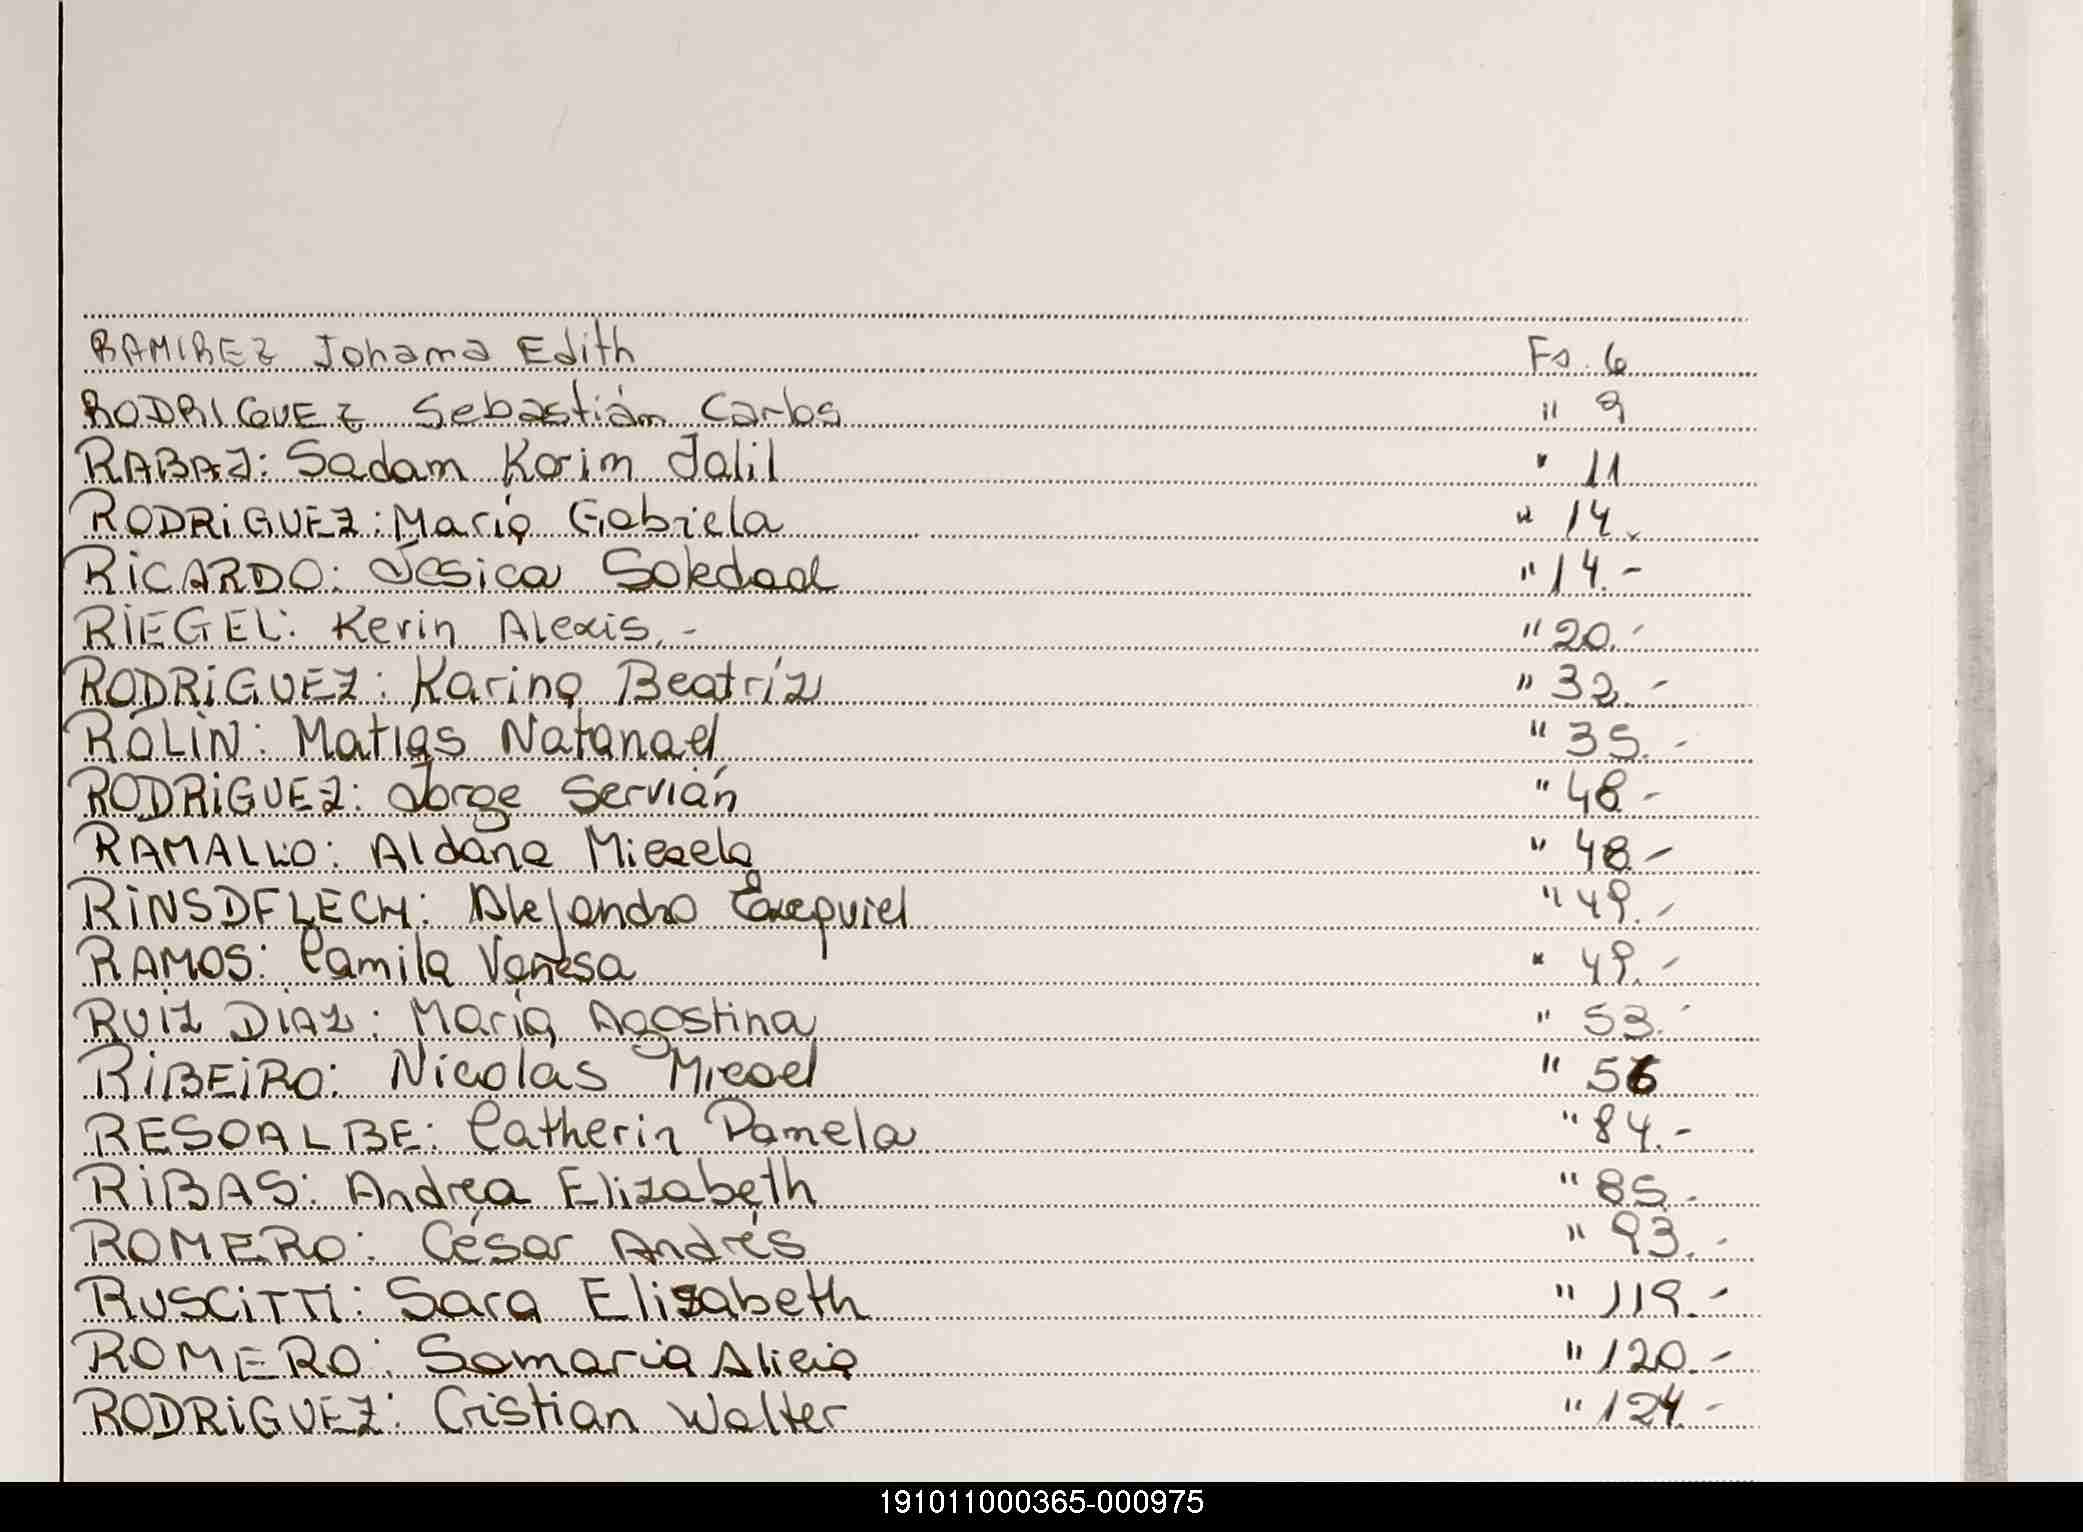 RAMIREZ Johana Edith Fs. 6
RODRIGUEZ Sebastián Carlos " 9
RABAJ: Sadam Karim Jalil " 11
RODRIGUEZ: María Gabriela " 14.
RICARDO: Jesica Soledad " 14.-
RIEGEL: Kevin Alexis.- " 20.-
RODRIGUEZ: Karina Beatríz " 32.-
ROLIN: Matías Natanael " 35.-
RODRIGUEZ: Jorge Servián " 48.-
RAMALLO: Aldana Micaela " 48.-
RINSDFLECH: Alejandro Exequiel " 49.-
RAMOS: Camila Vanesa " 49.-
RUIZ DIAZ: María Agostina " 53.-
RIBEIRO: Nicolás Micael " 56
RESOALBE: Catherin Pamela " 84.-
RIBAS: Andrea Elizabeth " 85.-
ROMERO: César Andrés " 93.-
RUSCITTI: Sara Elisabeth " 119.-
ROMERO: Samaria Alicia " 120.-
RODRIGUEZ: Cristian Walter " 124.-
191011000365-000975